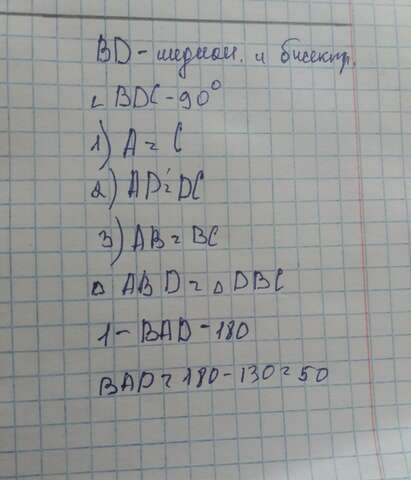 BD - медиан. и бисектр.
∠ BDC - 90°
1) A = C
2) AD = DC
3) AB = BC
△ ABD = △ DBC
1 - BAD - 180
BAD = 180 - 130 = 50